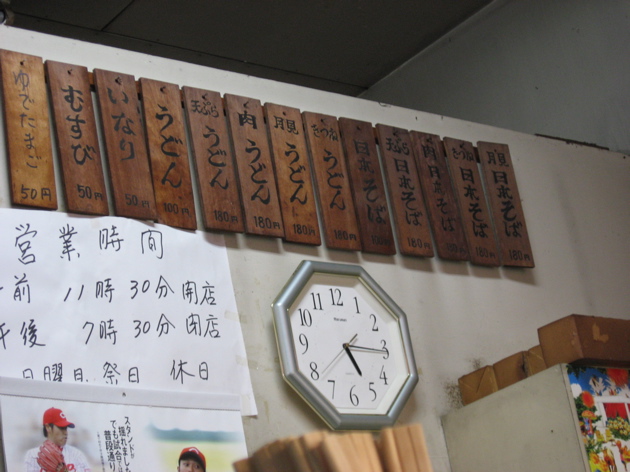 ゆでたまご
50円
むすび
50円
いなり
50円
うどん
100円
天ぷら
うどん
180円
肉
うどん
180円
月見
うどん
180円
きつね
うどん
180円
日本そば
100円
天ぷら
日本そば
180円
肉
日本そば
180円
きつね
日本そば
180円
月見
日本そば
180円
営業時間
前 11時30分 開店
午後 7時30分 閉店
日曜日 祭日 休日
12
1
2
3
4
5
6
7
8
9
10
11
スタンドが
揺れました
でも試合で
普段通り